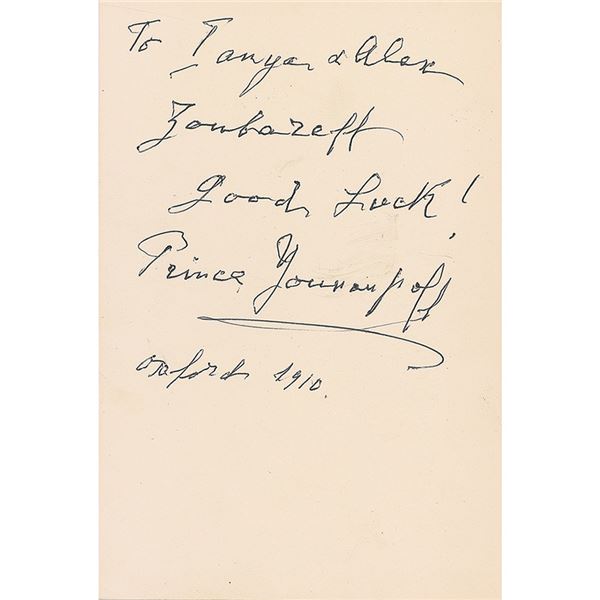 To Tanya & Alex
Zoubareff
Good Luck!
Prince Youssoupoff
Oxford 1910.